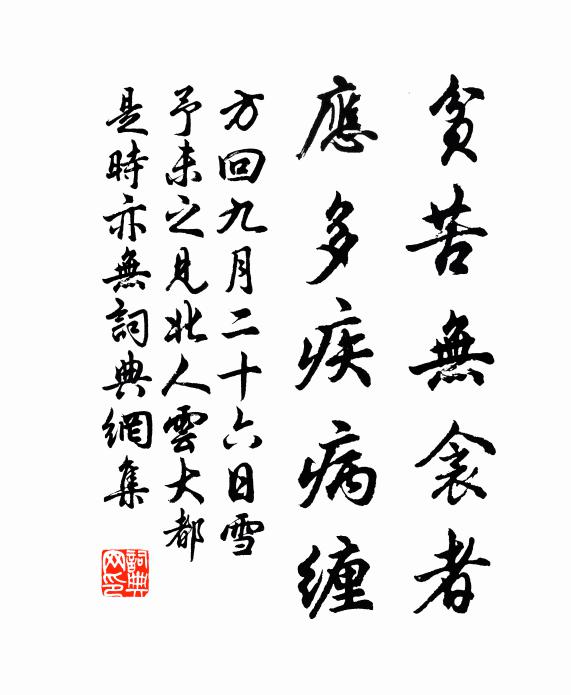 貧苦無衾者
應多疾病纏
方回九月二十六日雪
予未之見北人雲大都
是時亦無詞典網集
詞典网印